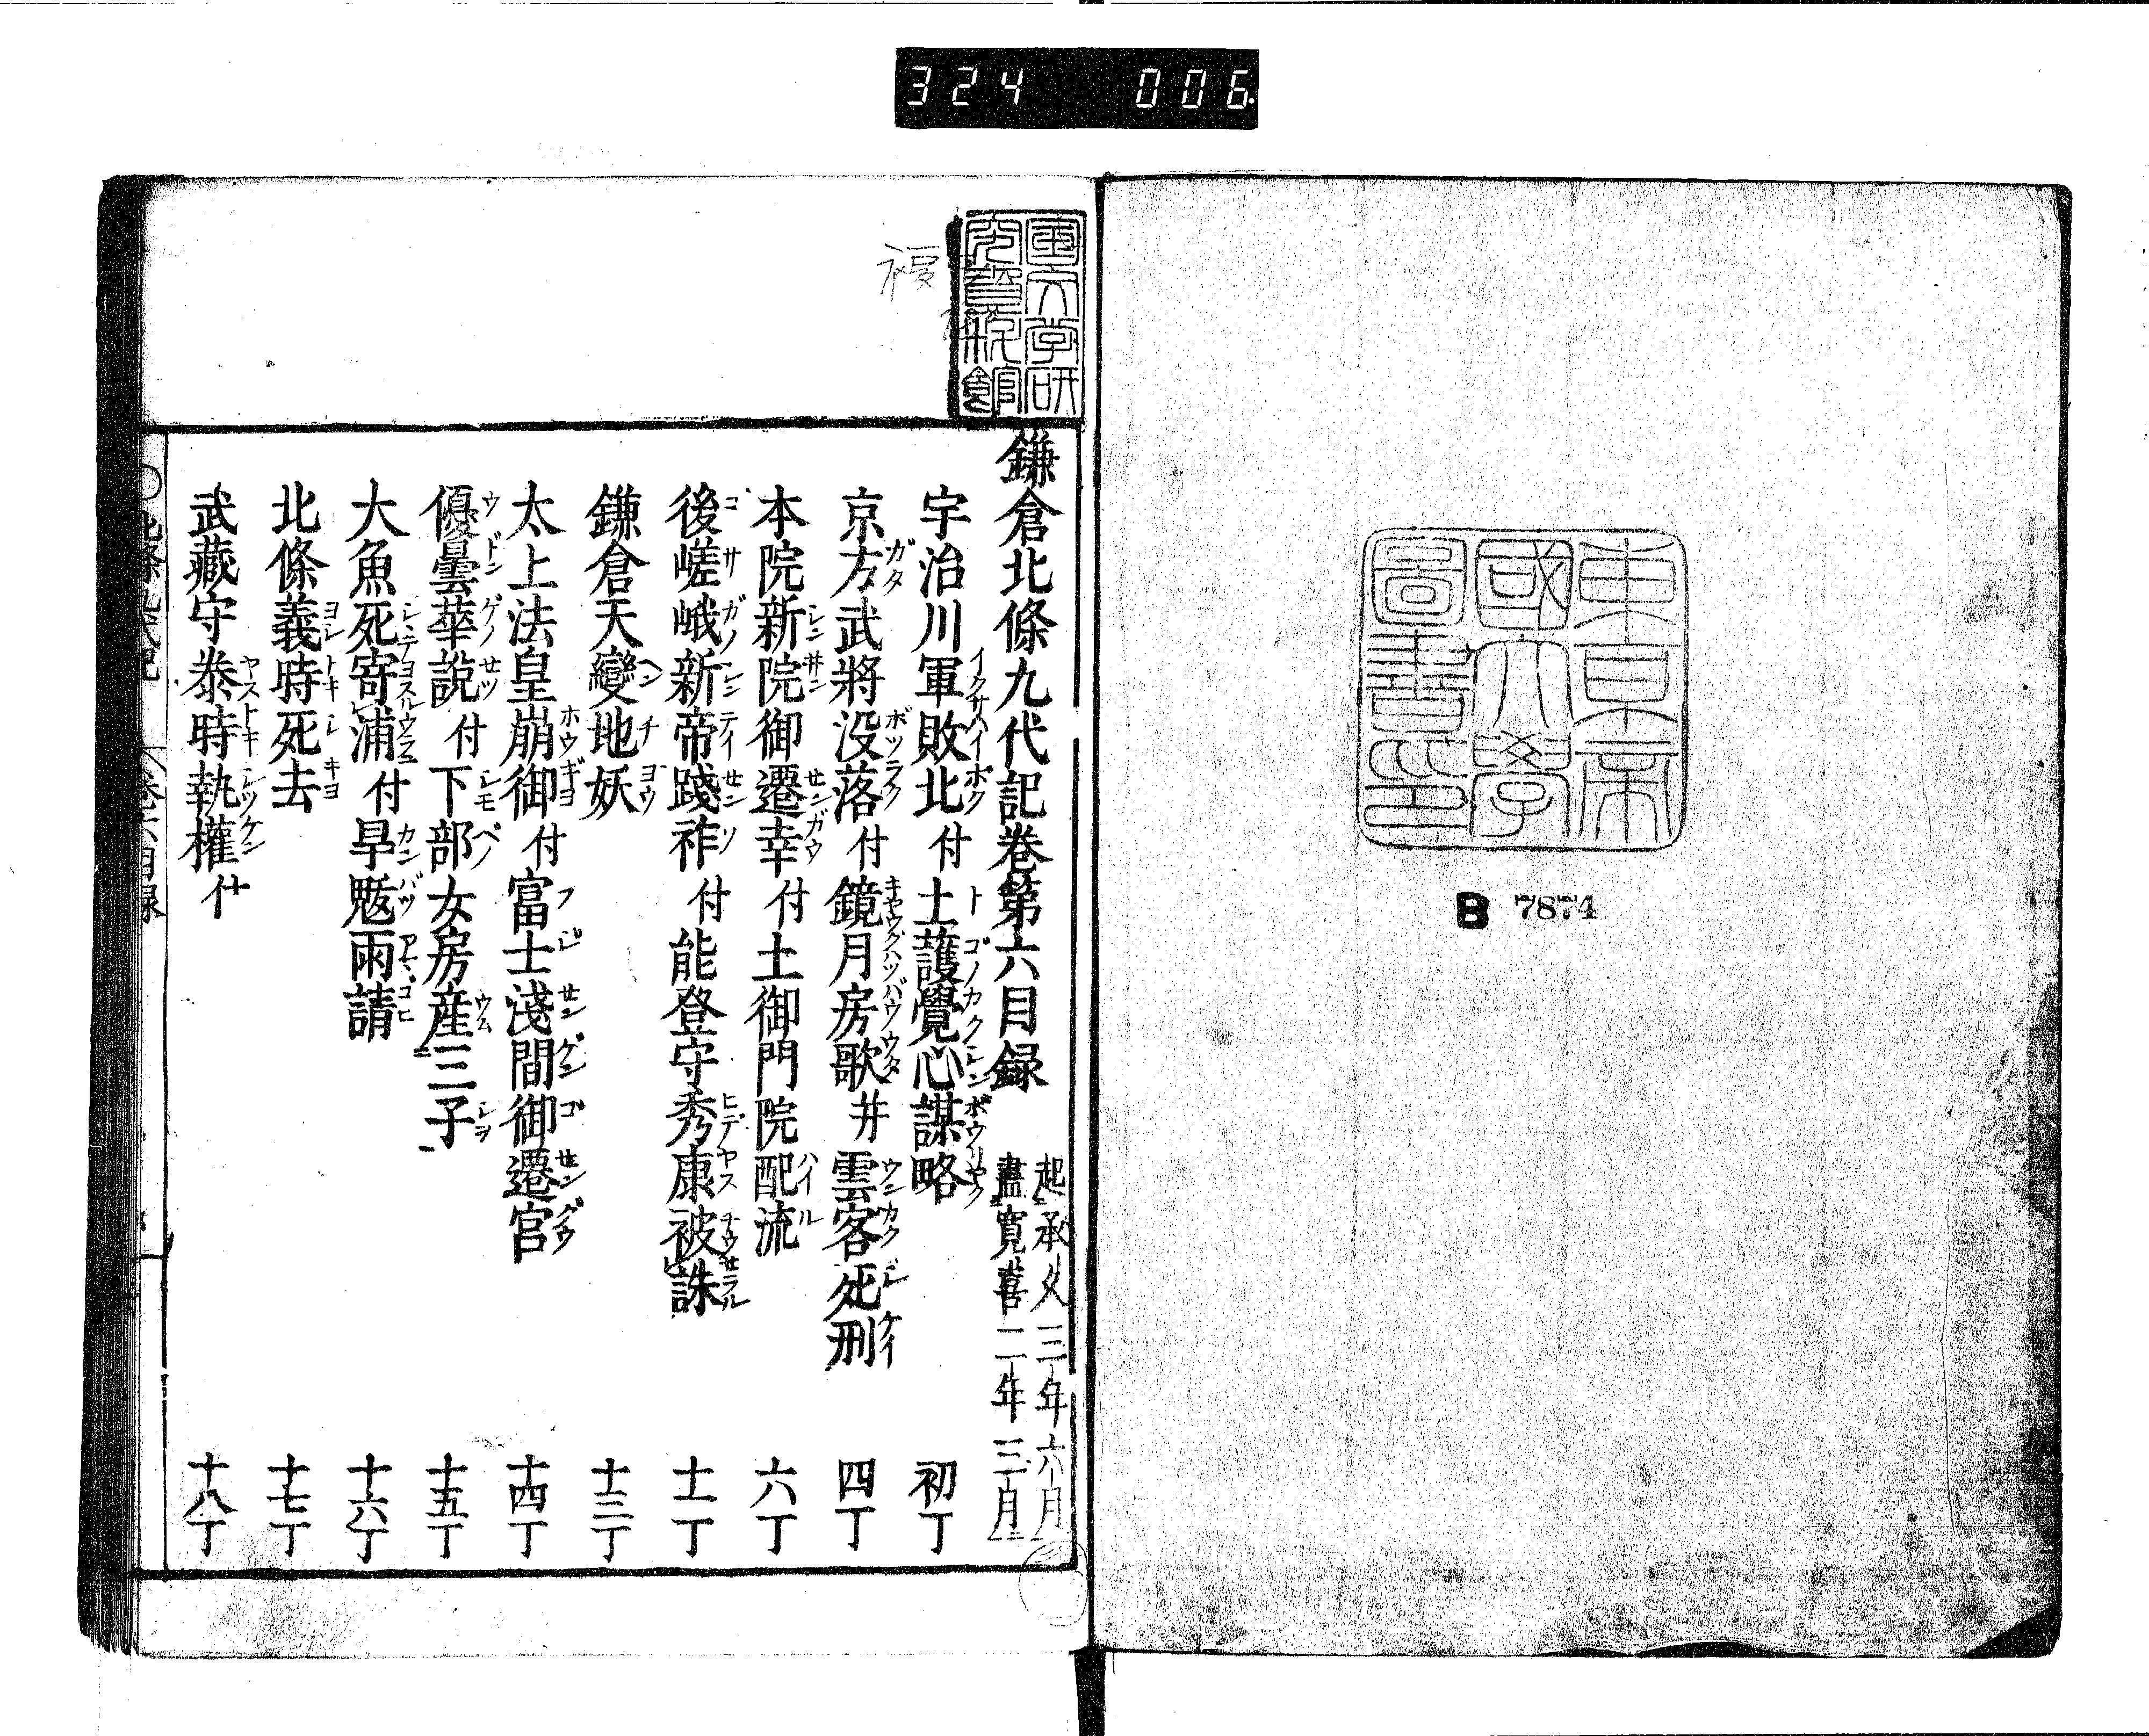 324 006
東京帝
國大學
圖書印
B 7874
国文学研
究資料館
鎌倉北條九代記巻第六目録 起承久三年六月 盡寛喜二年三月
宇治川軍敗北付土護覺心謀略 初丁
京方武將没落付鏡月房歌井雲客死刑 四丁
本院新院御遷幸付土御門院配流 六丁
後嵯峨新帝踐祚付能登守秀康被誅 十一丁
鎌倉天變地妖 十三丁
太上法皇崩御付富士淺間御遷宮 十四丁
優曇華說付下部女房産三子 十五丁
大魚死寄浦付旱魃雨請 十六丁
北條義時死去 十七丁
武藏守泰時執權付 十八丁